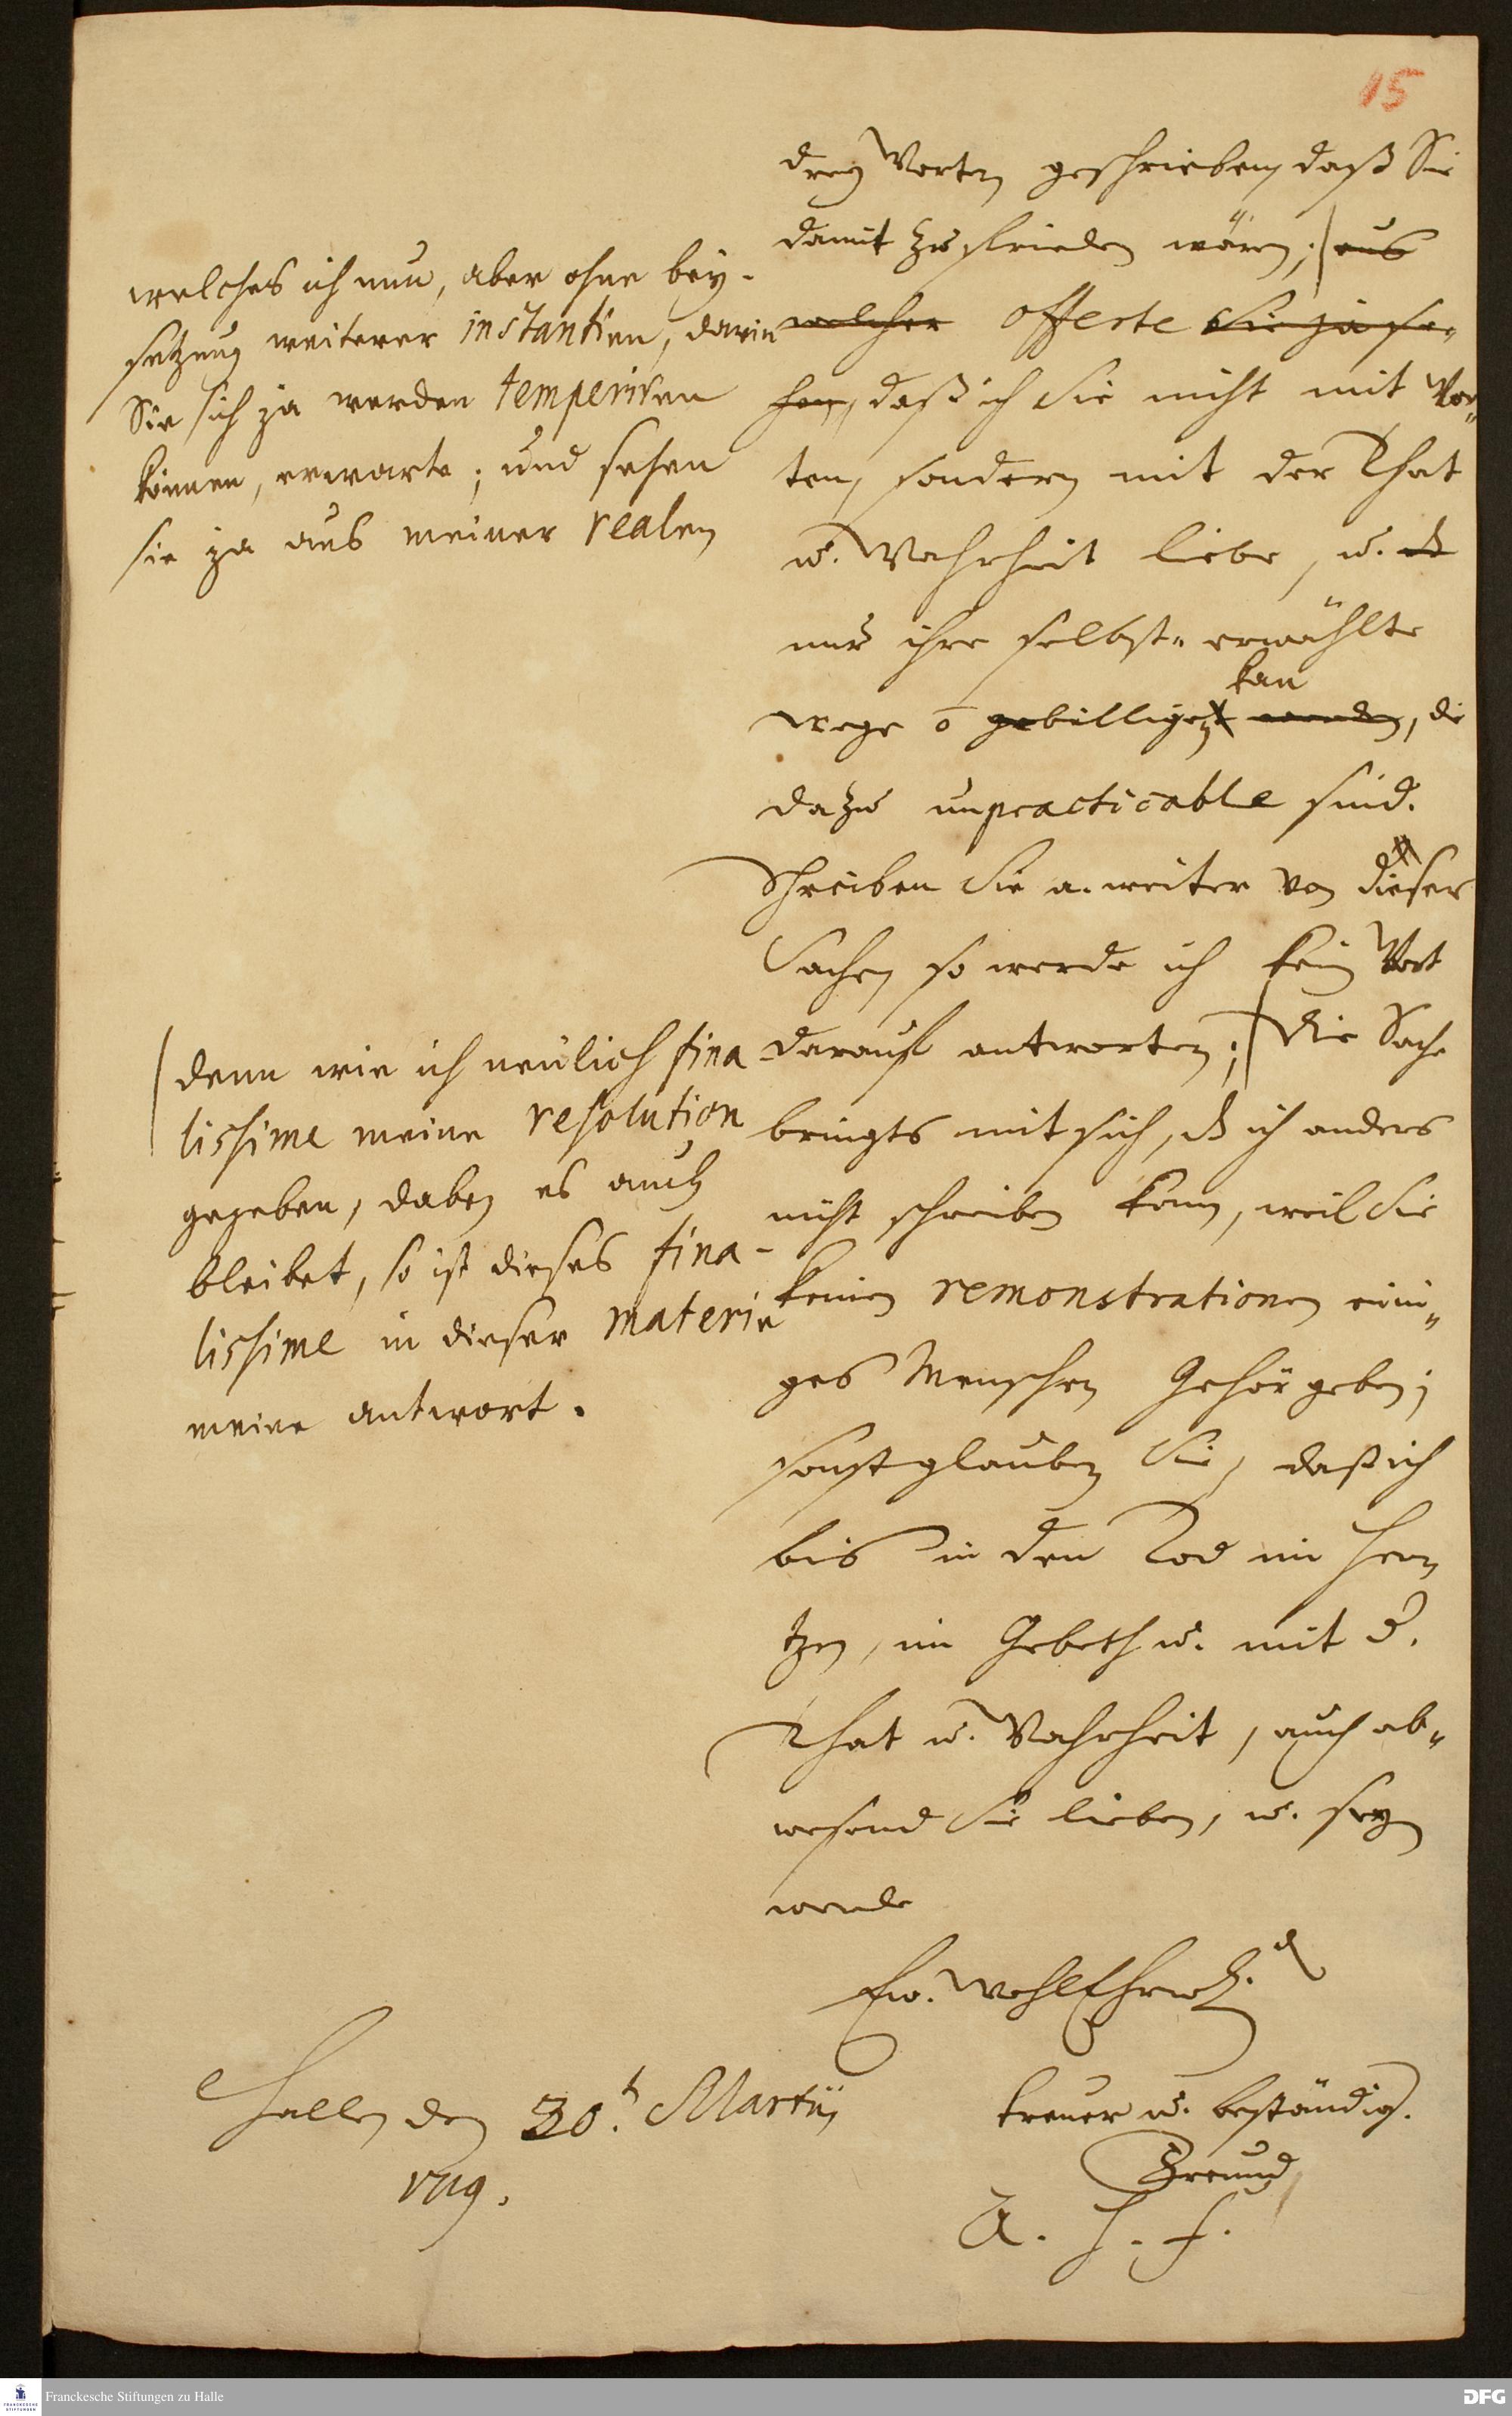 15
drey Worten geschrieben, daß Sie
damit zu frieden wären; aus
welcher offerte Sie ja se-
hen, daß ich Sie nicht mit Wor-
ten, sondern mit der That
u. Wahrheit liebe, u.
nur ihre selbst- erwählte
kan
wege o gebilligen werden, die
dazu unpracticable sind.
Schreiben Sie a. weiter von dieser
Sachen so werde ich kein Wort
darauf antworten; Die Sache
bringts mit sich, dß ich anders
nicht schreiben kann, weil Sie
keinen remonstrationen eini-
ges Menschen Gehör geben;
sonst glauben Sie, daß ich
bis in den Tod im Hertzen
tzen, im Gebeth u. mit d.
That u. Wahrheit, auch ab-
wesend Sie lieben, u. seyn
werde
Ew. WohlEhrw.
treuer u. beständig.
Freund
A. H. F.
welches ich nun, aber ohne bey-
setzung weiterer instantien, darin
Sie sich ja werden temperiren
können, erwarte; und sehen
sie ja aus meiner realen
denn wie ich neulich fina-
lissime meine resolution
gegeben, dabey es auch
bleibet, so ist dieses fina-
lissime in dieser materie
meine antwort.
Halle den 30.t Martii
1719.
Franckesche Stiftungen zu Halle
DFG